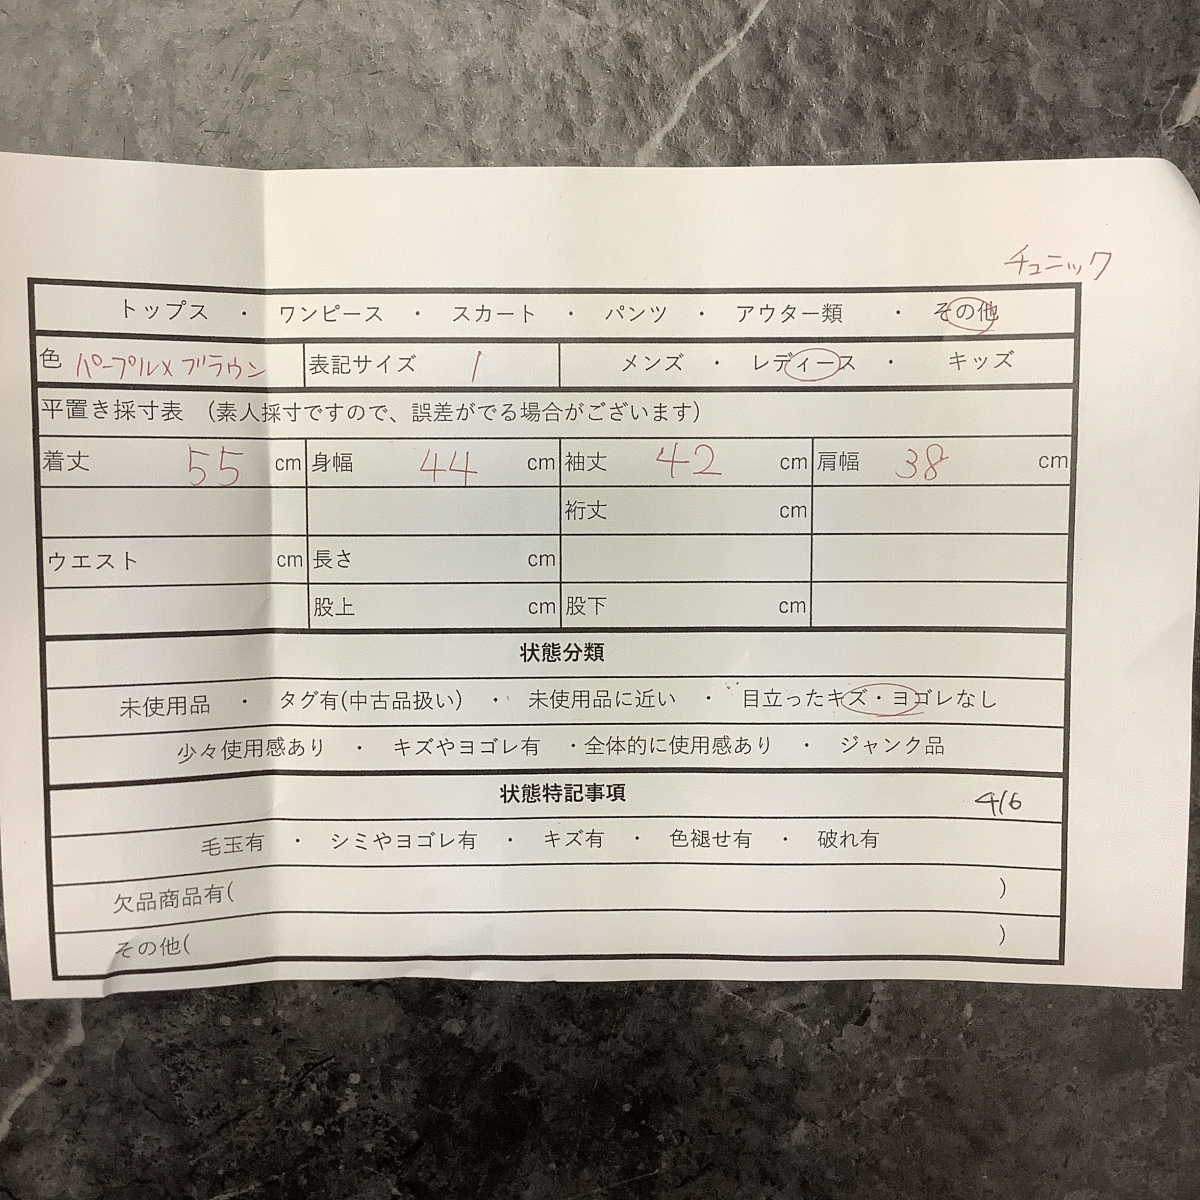 チュニック
トップス ・ ワンピース ・ スカート ・ パンツ ・ アウター類 ・ その他
色 パープル×ブラウン 表記サイズ 1 メンズ ・ レディース ・ キッズ
平置き採寸表 (素人採寸ですので、誤差がでる場合がございます)
着丈 55 cm 身幅 44 cm 袖丈 42 cm 肩幅 38 cm
裄丈 cm
ウエスト cm 長さ cm
股上 cm 股下 cm
状態分類
未使用品 ・ タグ有(中古品扱い) ・ 未使用品に近い ・ 目立ったキズ・ヨゴレなし
少々使用感あり ・ キズやヨゴレ有 ・全体的に使用感あり ・ ジャンク品
状態特記事項 4/6
毛玉有 ・ シミやヨゴレ有 ・ キズ有 ・ 色褪せ有 ・ 破れ有
欠品商品有( )
その他( )